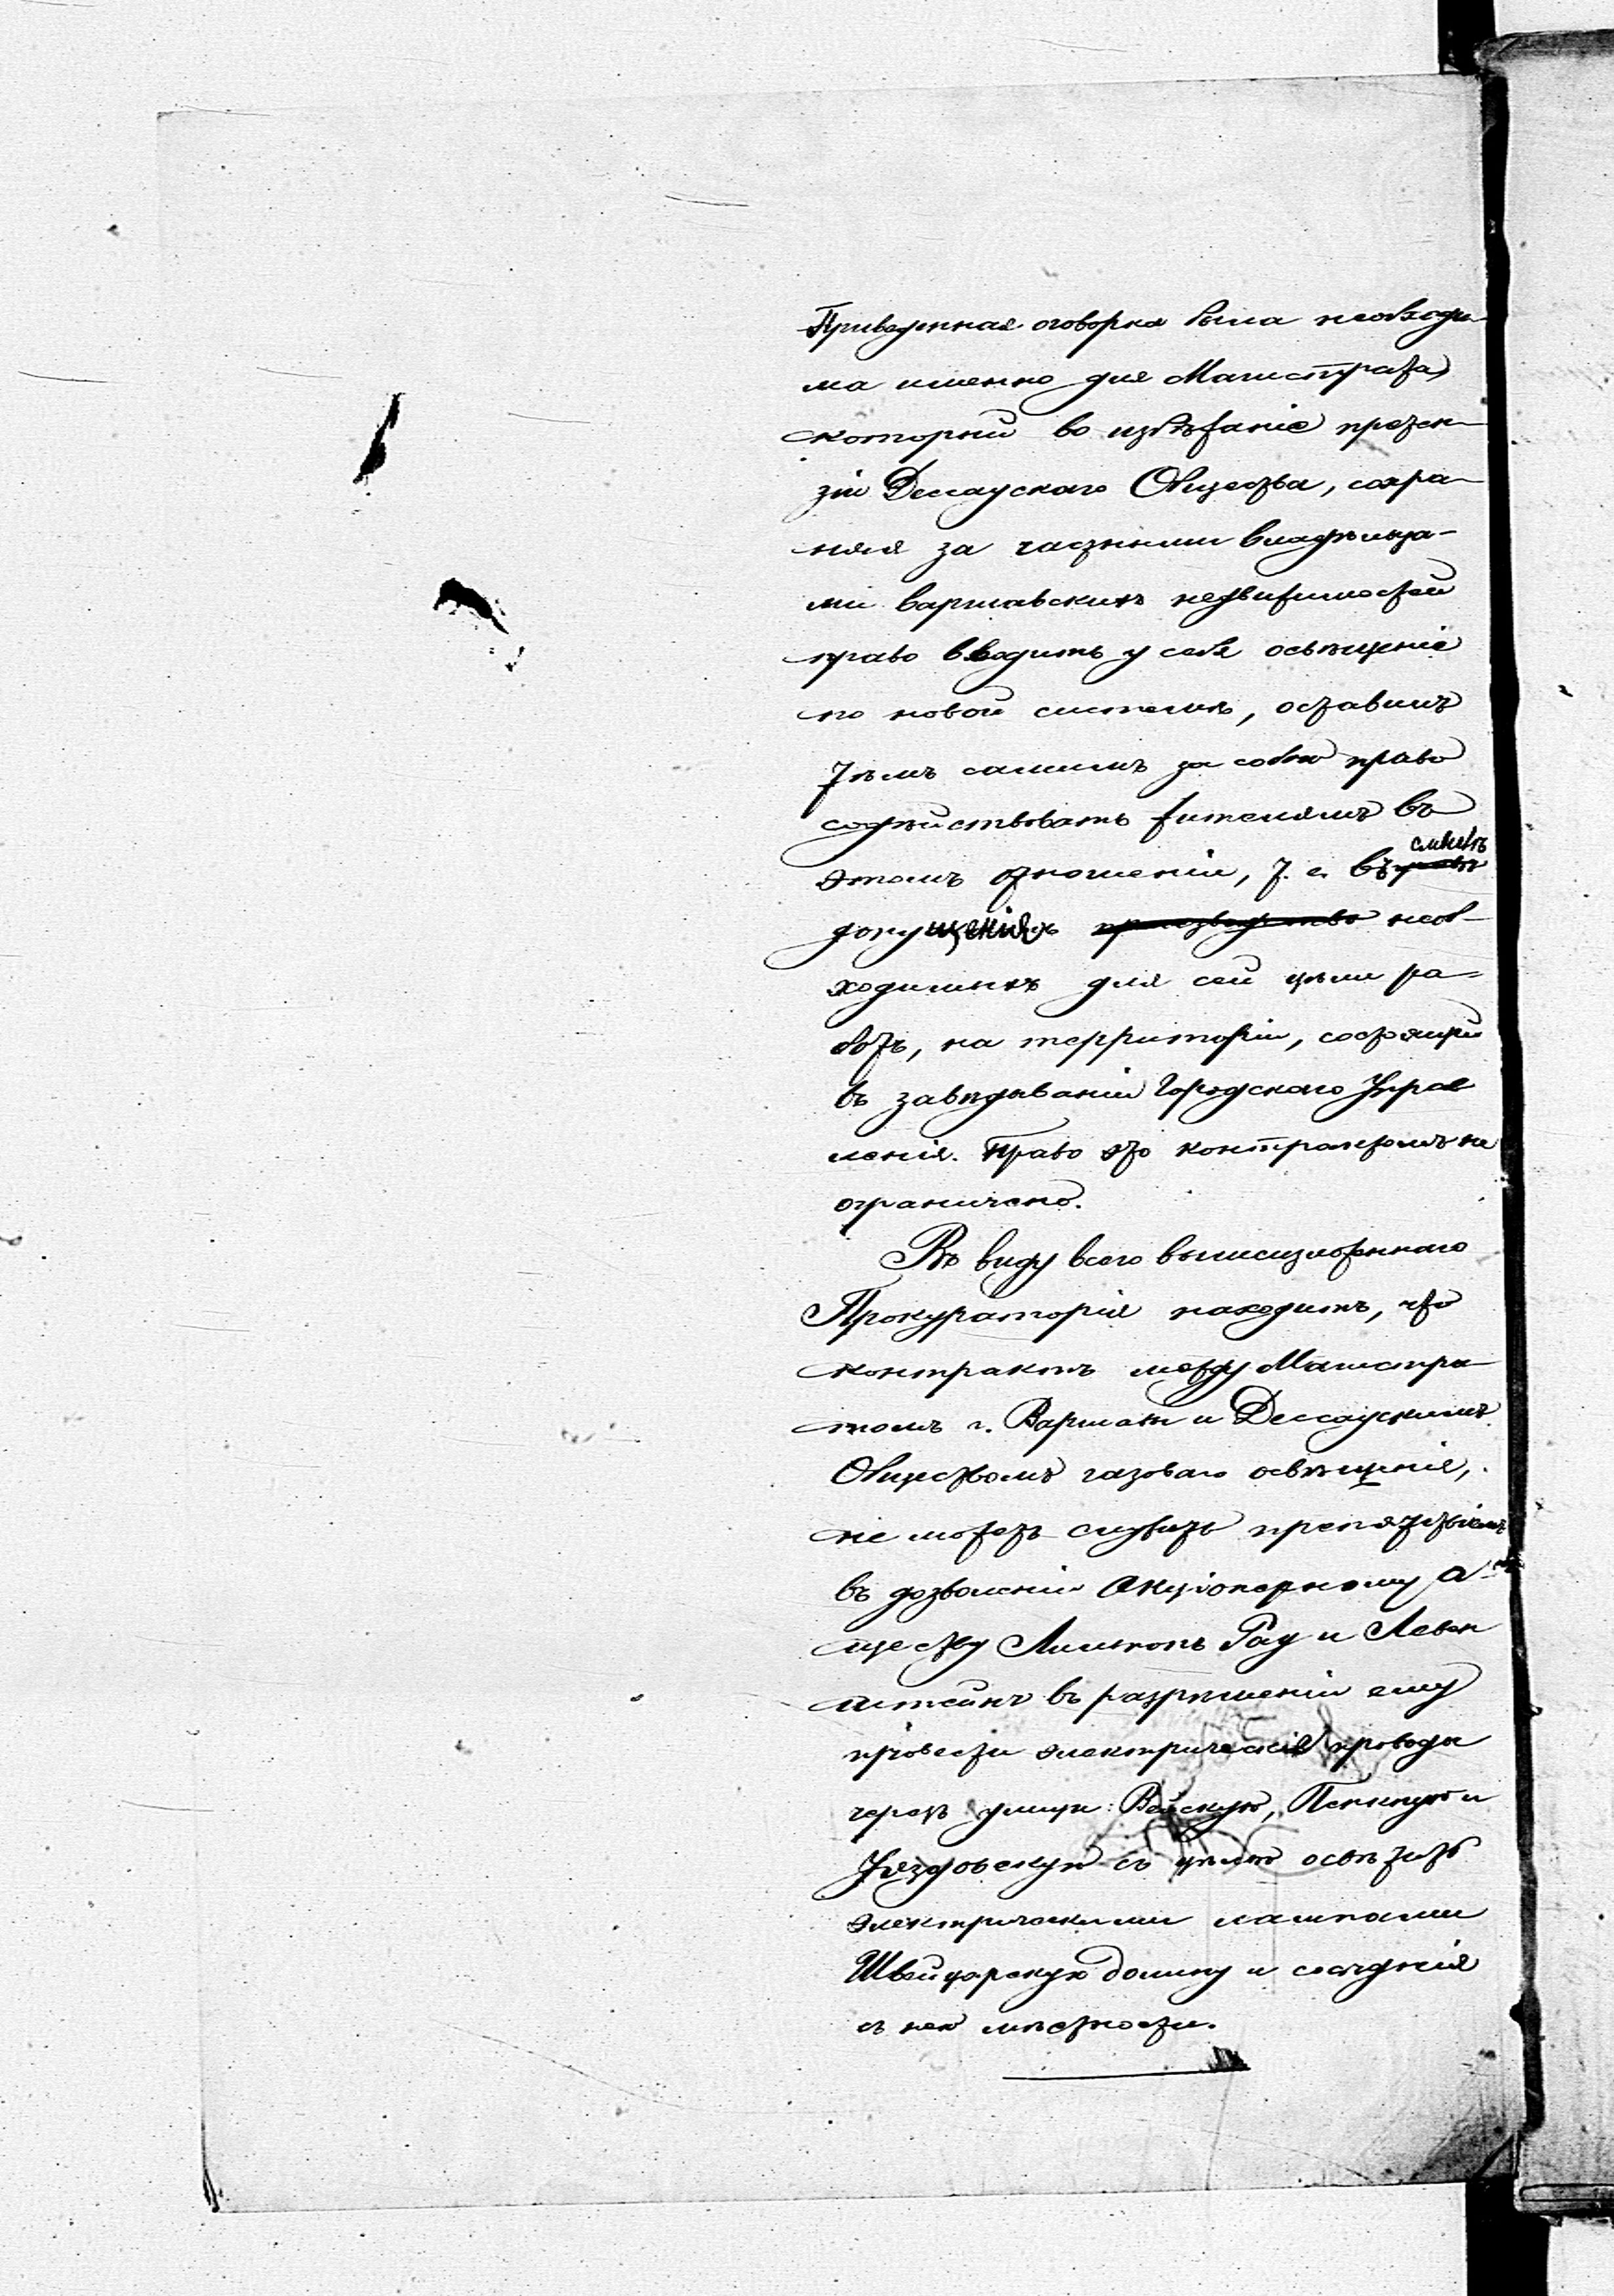 Приведенная оговорка была необходи-
ма именно для Магистрата,
который во избѣжаніе претен-
зій Дессаускаго Общества, сохра-
няя за частными владѣльца-
ми варшавскихъ недвижимостей
право вводить у себя освѣщеніе
по новой системѣ, оставилъ
тѣмъ самымъ за собою право
содѣйствовать жителямъ въ
этомъ отношеніи, т. е. въ смыслѣ
допущенія производство необ-
ходимыхъ для сей цѣли ра-
ботъ, на территоріи, состоящей
въ завѣдываніи Городского Управ
ленія. Право это контрактомъ не
ограничено.
Въ виду всего вышеизложеннаго
Прокураторія находитъ, что
контрактъ между Магистра-
томъ г. Варшавы и Дессаускимъ
Обществомъ газоваго освѣщенія,
не можетъ служить препятствіемъ
въ дозволеніи Акціонерному О
ществу Лильпопъ Рау и Левен
штейнъ въ разрѣшеніи ему
провести электрическіе проводы
черезъ улицы: Вейскую, Пенкную и
Уяздовскую съ цѣлью освѣтить
электрическими лампами
Швейцарскую долину и сосѣднія
съ нею мѣстности.